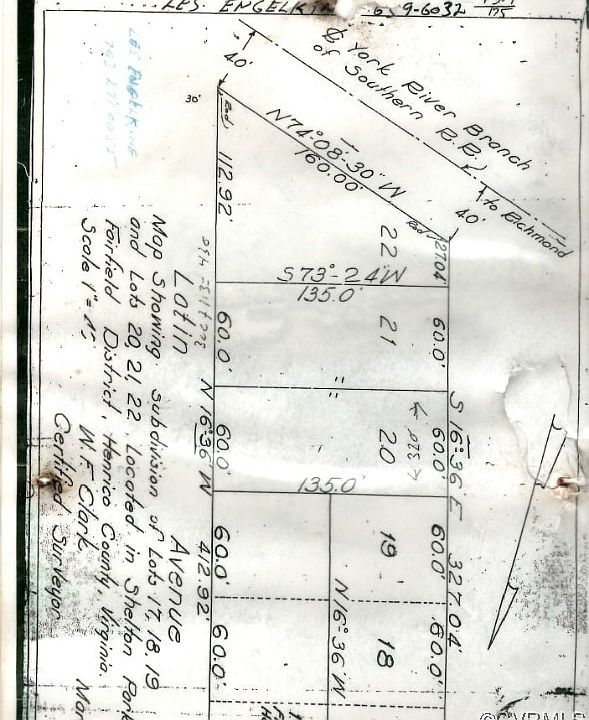 LES. ENGELKIN 6 9-6032
175
LE ENGELKING
40'
₵ York River Branch
of Southern R.R.
to Richmond
40'
30'
Rod
N74°-08'-30" W
160.00'
Rod
112.92'
22
27.04'
S73°-24'W
135.0'
60.0'
21
60.0'
"
"
60.0'
20
60.0'
135.0'
60.0'
19
60.0'
60.0'
18
60.0'
N 16°36' W
S 16°36' E 327.04'
Latin Avenue
N 16°36' W 412.92'
Map Showing subdivision of Lots 17, 18 19
and Lots 20, 21, 22 Located in Shelton Park
Fairfield District, Henrico County, Virginia.
Scale 1"=
W. F. Clark
Certified Surveyor
Mar
©CVRMLS